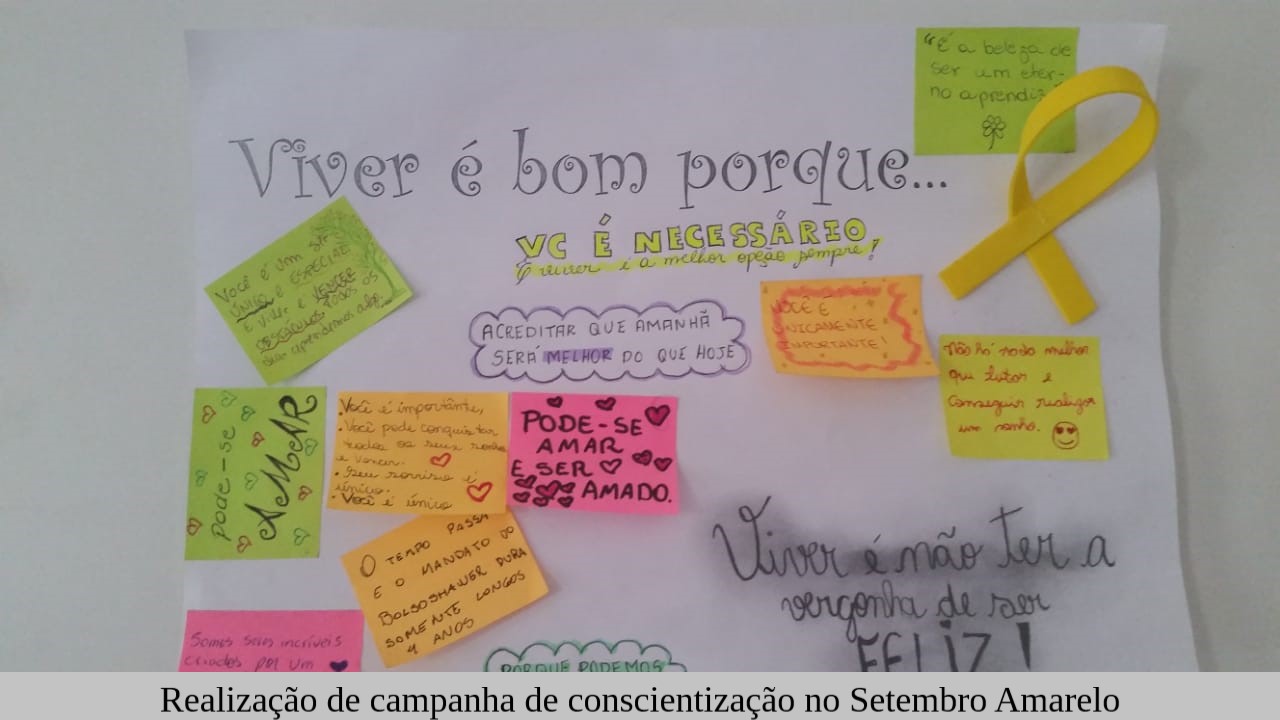 "É a beleza de
ser um eter-
no aprendiz"
Viver é bom porque...
VC É NECESSÁRIO
E viver é a melhor opção sempre!
Você é um ser
ÚNICO e ESPECIAL
E viver e VENCER
OBSTÁCULOS TODOS OS
dias aprendemos algo...
ACREDITAR QUE AMANHÃ
SERÁ MELHOR DO QUE HOJE
VOCÊ É
UNICAMENTE
IMPORTANTE!
Não há nada melhor
que lutar e
Conseguir realizar
um sonho.
pode-se
AMAR
Você é importante,
• Você pode conquistar
todos os seus sonhos
e vencer.
• Seu sorriso é
único.
• Você é único
PODE-SE
AMAR
E SER
AMADO.
O TEMPO PASSA
E O MANDATO DO
BOLSOSHAWER DURA
SOMENTE LONGOS
4 ANOS
Viver é não ter a
vergonha de ser
FELIZ!
Somos seres incríveis
criados por um
PORQUE PODEMOS
Realização de campanha de conscientização no Setembro Amarelo